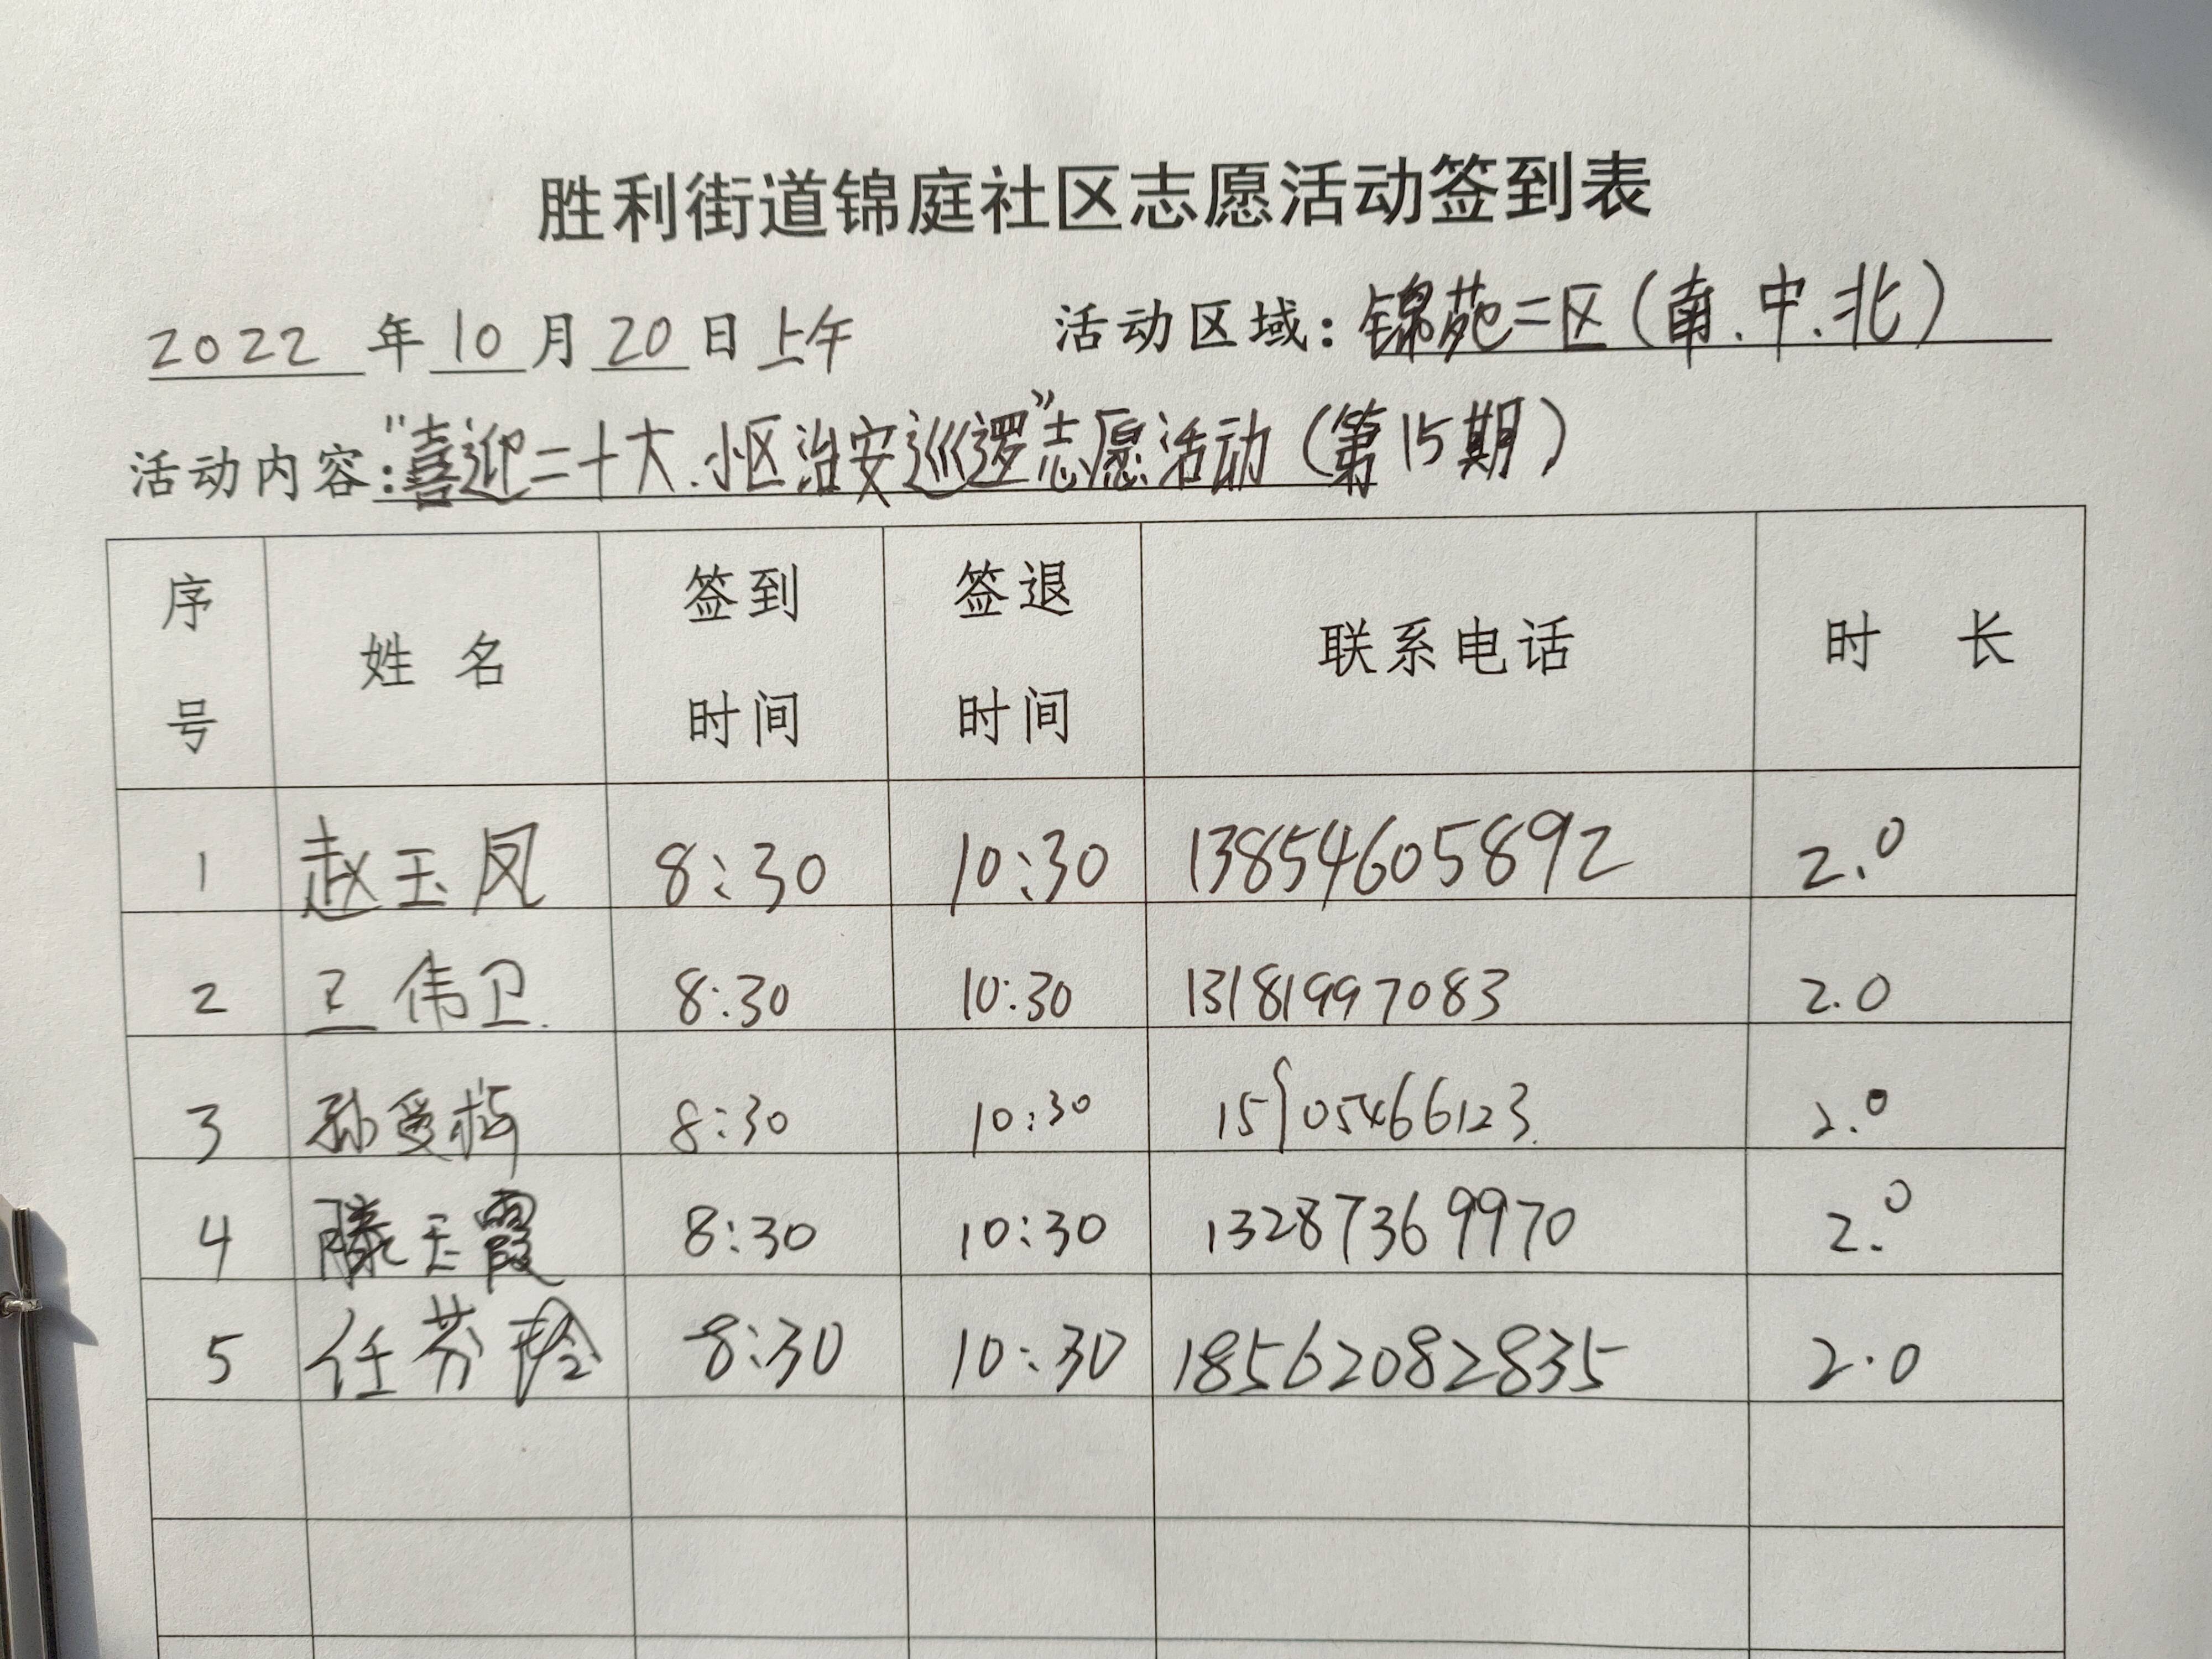 胜利街道锦庭社区志愿活动签到表
2022 年 10 月 20 日 上午 活动区域：锦苑二区（南.中.北）
活动内容：“喜迎二十大.小区治安巡逻”志愿活动（第15期）
序号 姓名 签到时间 签退时间 联系电话 时长
1 赵玉凤 8:30 10:30 13854605892 2.0
2 王伟卫 8:30 10:30 13181997083 2.0
3 孙爱梅 8:30 10:30 15105466123 2.0
4 滕玉霞 8:30 10:30 13287369970 2.0
5 任芬玲 8:30 10:30 18562082835 2.0